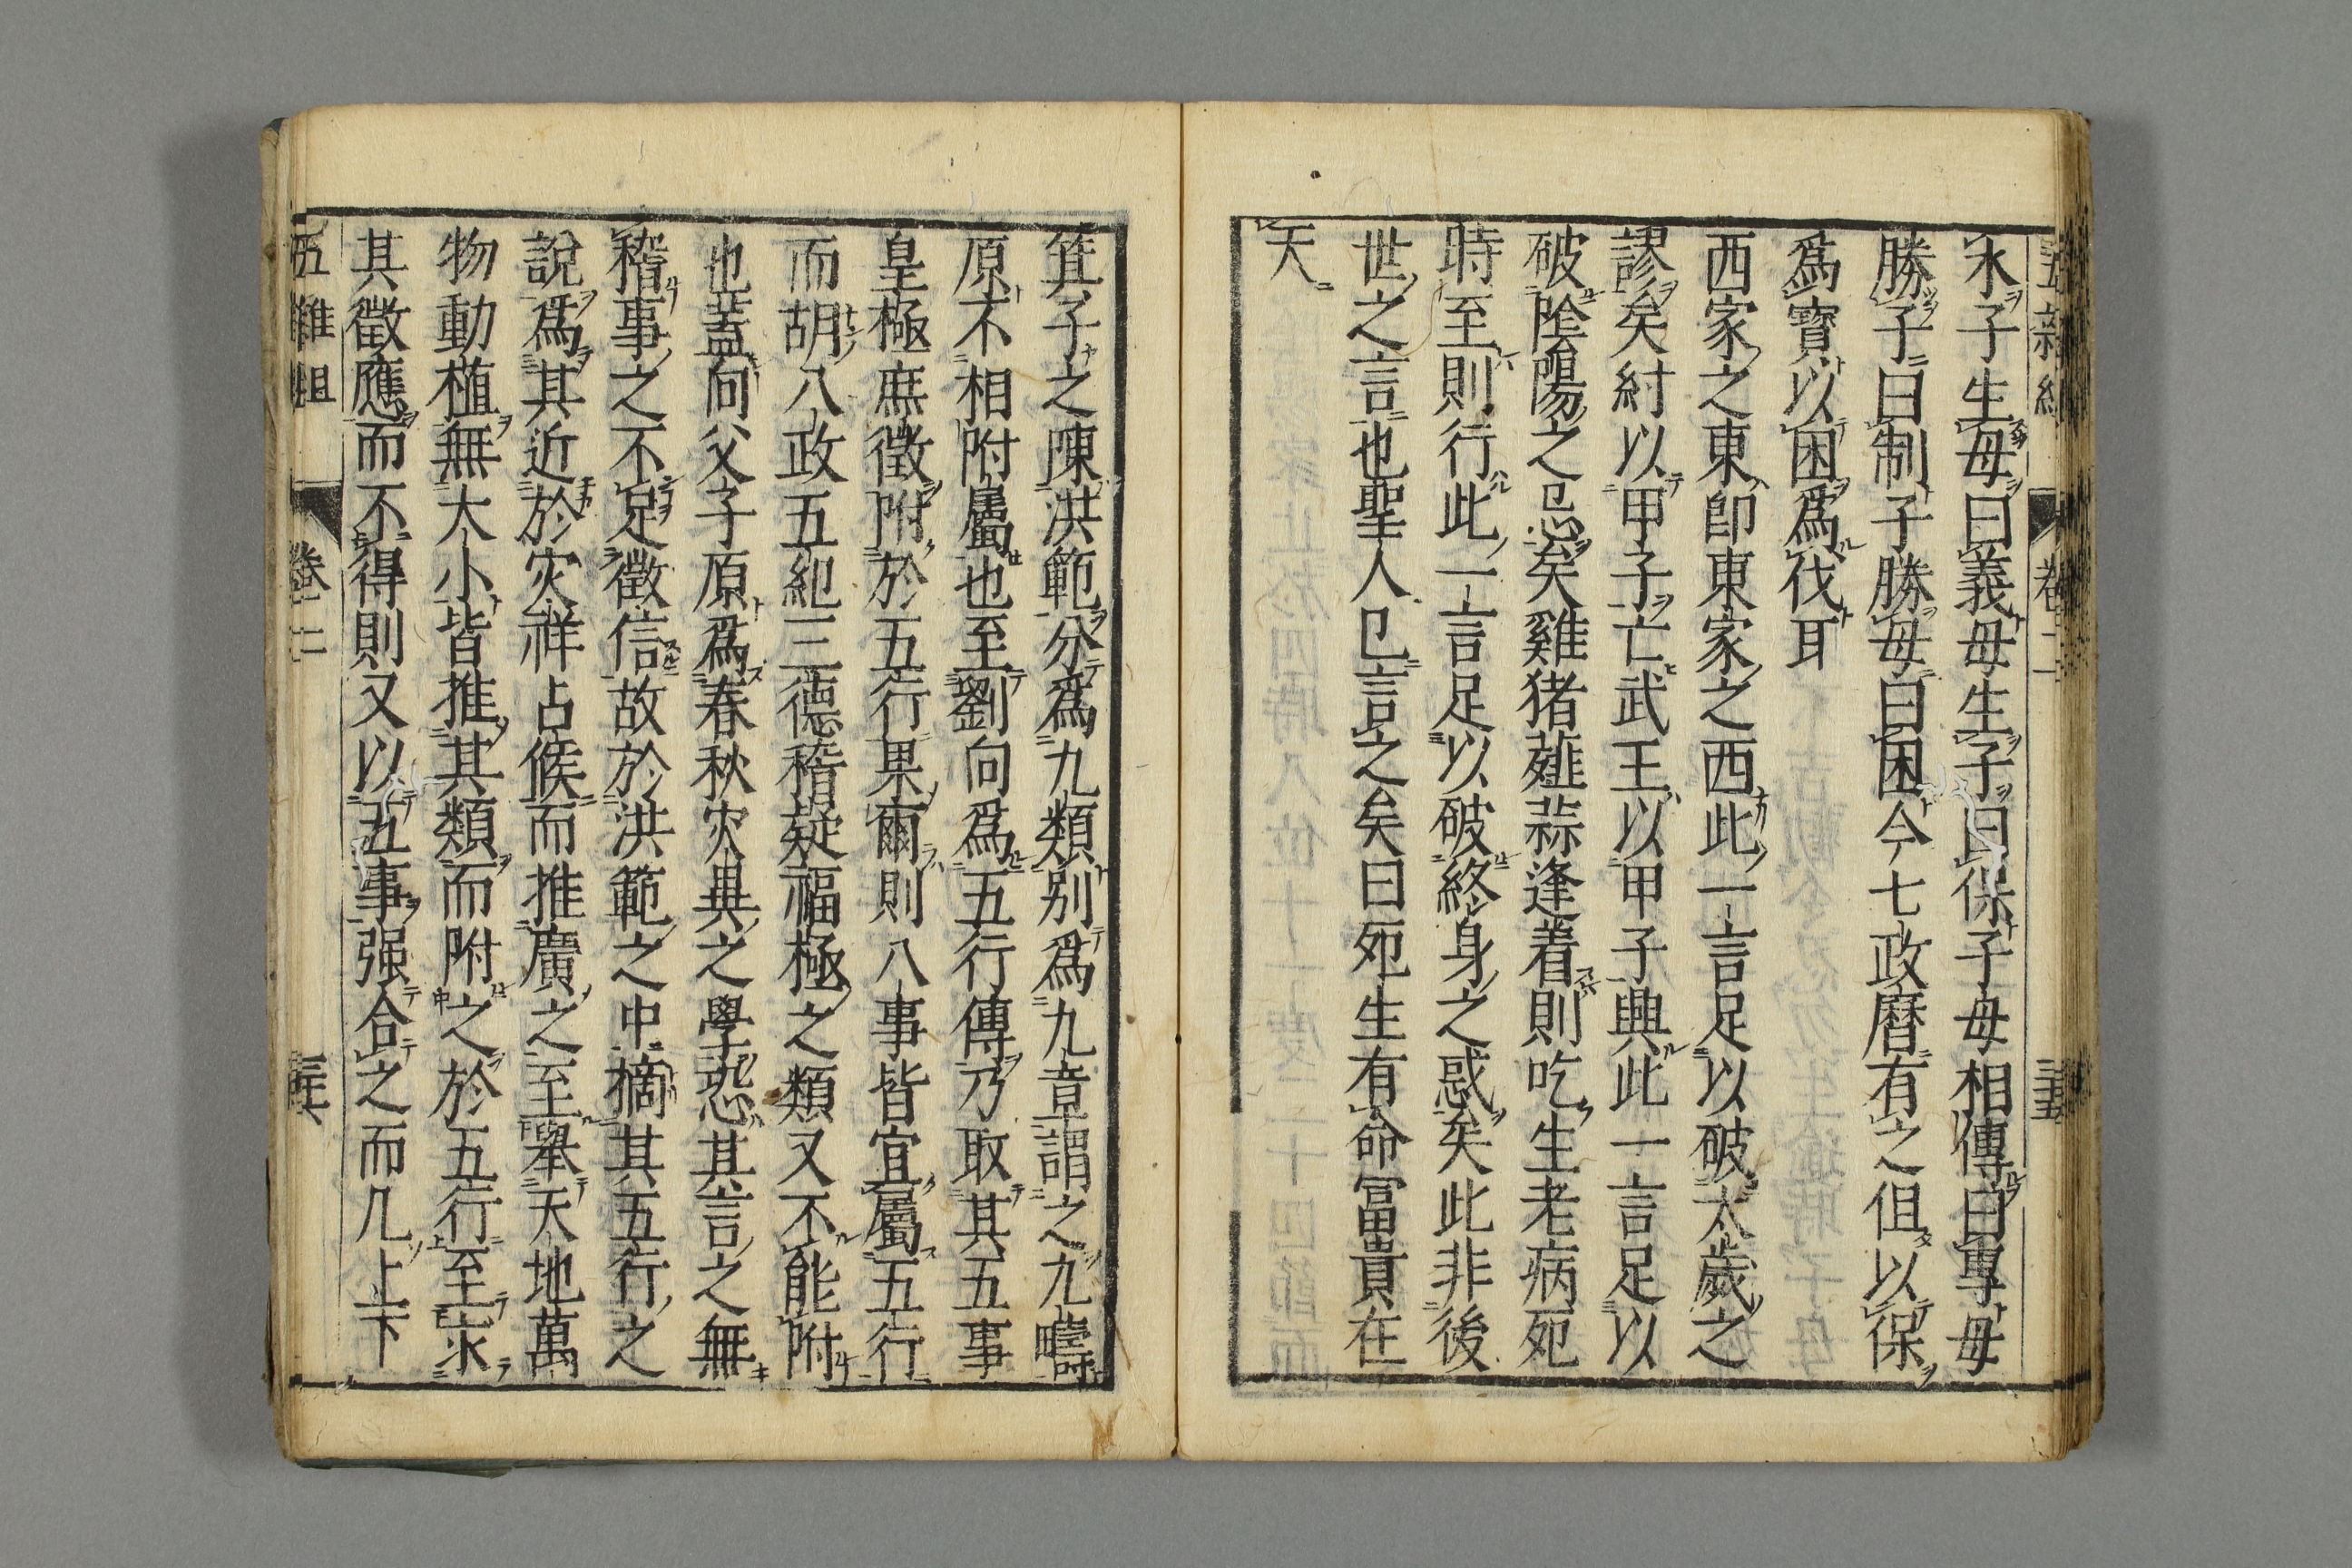 水子生母曰義母生子曰保子母相傳曰專母
勝子曰制子勝母曰困今七政曆有之但以保
爲寳以困爲伐耳
西家之東卽東家之西此一言足以破太歲之
謬矣紂以甲子亡武王以甲子興此一言足以
破陰陽之忌矣雞猪薤蒜逢着則吃生老病死
時至則行此一言足以破終身之惑矣此非後
世之言也聖人已言之矣曰死生有命冨貴在
天
箕子之陳洪範分爲九類别爲九章謂之九疇
原不相附屬也至劉向爲五行傳乃取其五事
皇極庶徵附於五行果爾則八事皆宜屬五行
而胡八政五紀三德稽疑福極之類又不能附
也葢向父子原爲春秋灾異之學恐其言之無
稽事之不足徵信故於洪範之中摘其五行之
說爲其近於灾祥占候而推廣之至舉天地萬
物動植無大小皆推其類而附之於五行至求
其徵應而不得則又以五事强合之而凡上下
五雜俎 卷二